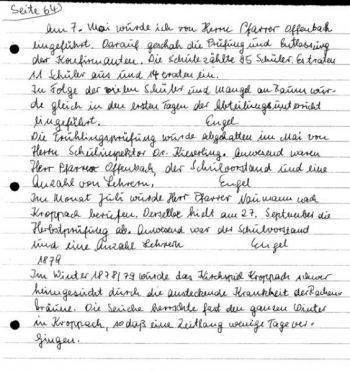 Seite 64)
Am 7. Mai wurde ich von Herrn Pfarrer Offenbach
eingeführt. Darauf geschah die Prüfung und Entlassung
der Konfirmanten. Die Schule zählte 85 Schüler. Es traten
11 Schüler aus und 14 traten ein.
In Folge der vielen Schüler und Mangel an Raum wur-
de gleich in den ersten Tagen der Abteilungsunterricht
eingeführt. Engel
Die Frühlingsprüfung wurde abgehalten im Mai von
Herrn Schulinspektor Dr. Anwesend waren
Herr Pfarrer Offenbach, der Schulvorstand und eine
Anzahl von Lehrern. Engel
Im Monat Juli wurde Herr Pfarrer Naumann nach
Kroppach berufen. Derselbe hielt am 27. September die
Herbstprüfung ab. Anwesend war der Schulvorstand
und eine Anzahl Lehrern Engel
1879
Im Winter 1878/79 wurde das Kirchspiel Kroppach schwer
heimgesucht durch die ansteckende Krankheit der Rachen-
bräune. Die Seuche herrschte fast den ganzen Winter
in Kroppach, sodaß eine Zeitlang wenige Tage ver-
gingen.